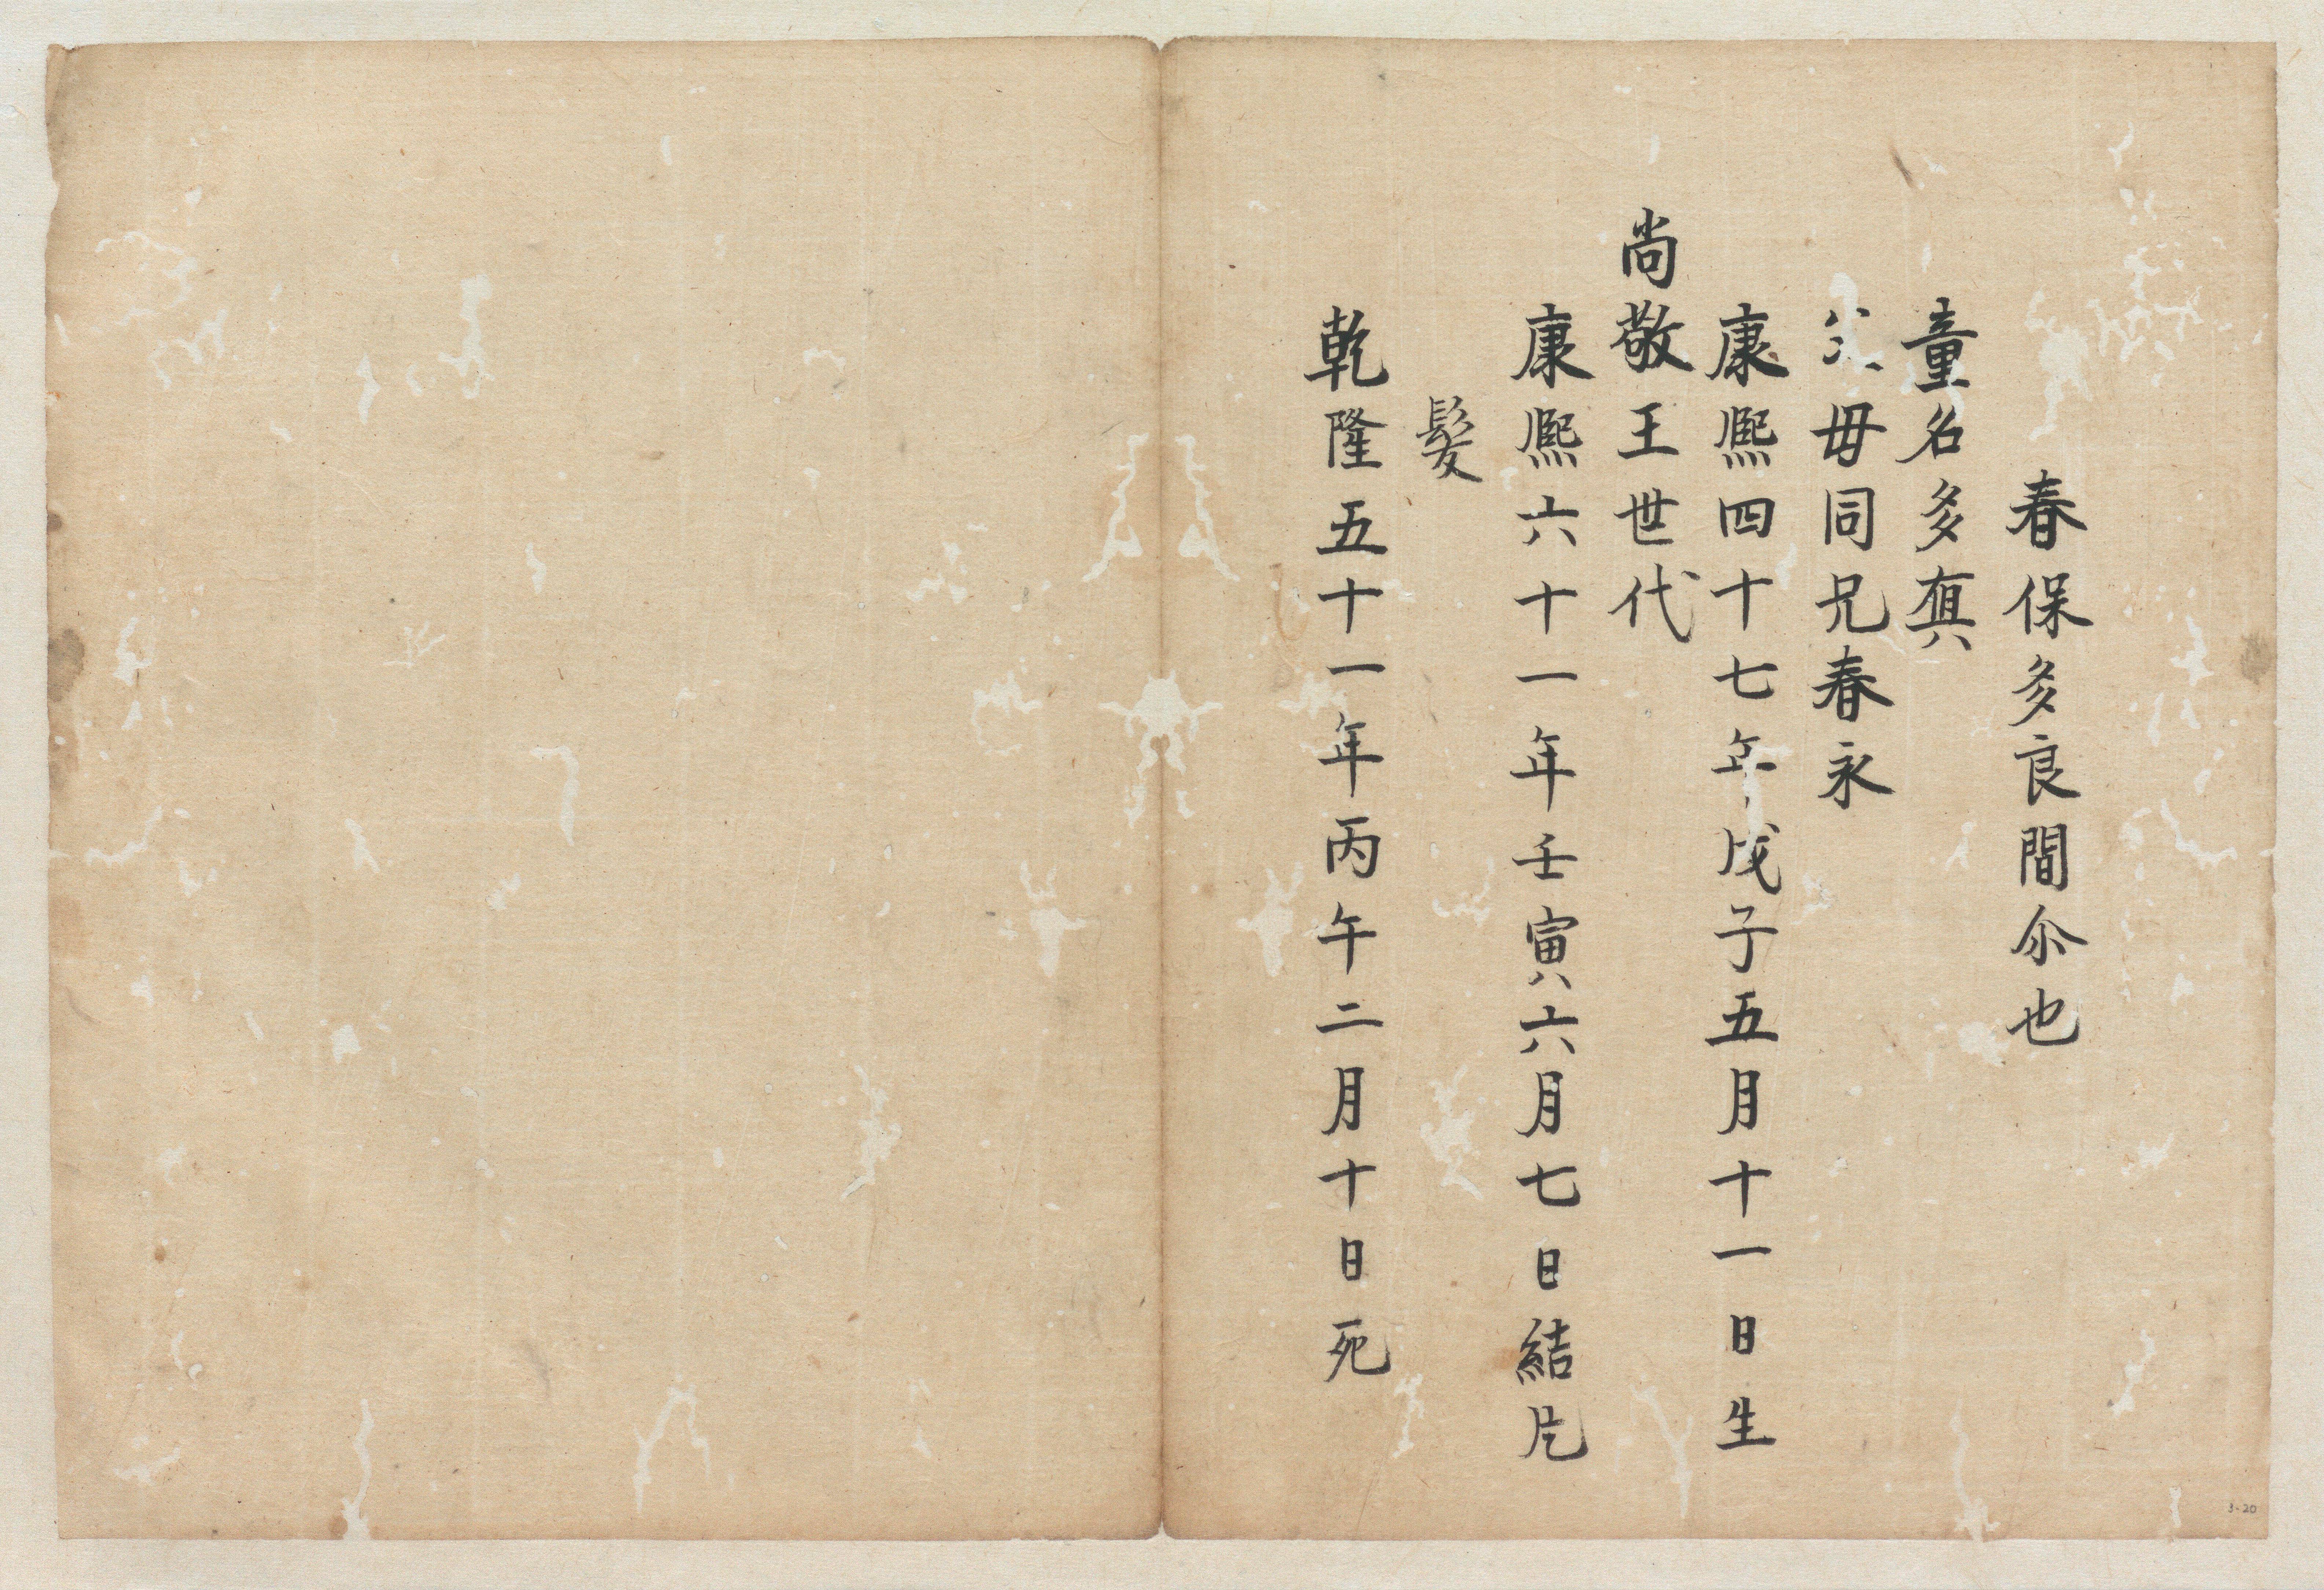 春保多良間尒也
童名多真
父母同兄春永
康熙四十七年戊子五月十一日生
尚敬王世代
康熙六十一年壬寅六月七日結片
髪
乾隆五十一年丙午二月十日死
3-20